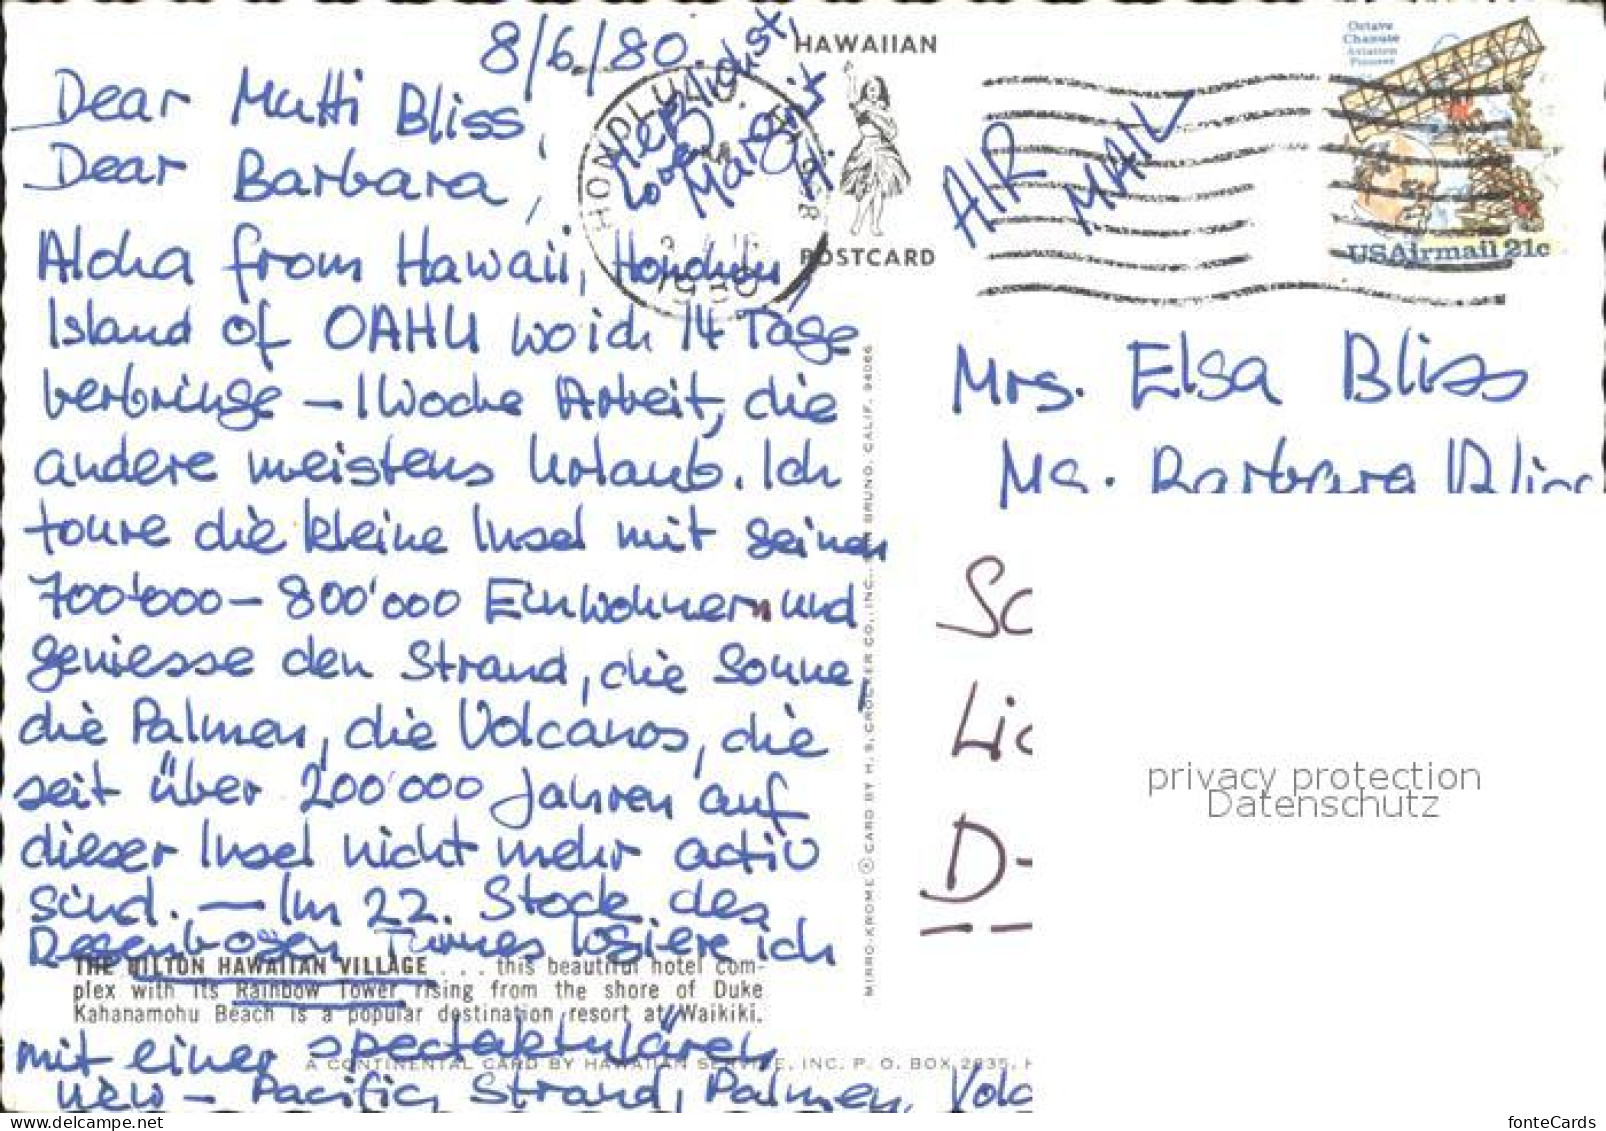 8/6/80.
Dear Mutti Bliss,
Dear Barbara,
Aloha from Hawaii, Honolulu
Island of OAHU wo ich 14 Tage
verbringe – 1 Woche Arbeit, die
andere meistens Urlaub. Ich
toure die kleine Insel mit seinen
700'000 – 800'000 Einwohnern und
geniesse den Strand, die Sonne,
die Palmen, die Volcanos, die
seit über 200'000 Jahren auf
dieser Insel nicht mehr activ
sind. – Im 22. Stock des
Regenbogen Turmes logiere ich
THE HILTON HAWAIIAN VILLAGE . . . this beautiful hotel com-
plex with its Rainbow Tower rising from the shore of Duke
Kahanamohu Beach is a popular destination resort at Waikiki.
mit einer spectaktulären
A CONTINENTAL CARD BY HAWAIIAN SERVICE, INC. P. O. BOX 2835, H
view – Pacific, Strand, Palmen, Volc
Herzlichst,
Love
Margrit
H.
HONOLULU
1980
HAWAIIAN
POSTCARD
AIR
MAIL
Octave
Chanute
Aviation
Pioneer
USAirmail 21c
MIRRO-KROME ® CARD BY H. S. CROCKER CO., INC., BRUNO, CALIF. 94066
Mrs. Elsa Bliss
Ms. Barbara Bliss
Sc
Lic
D-
privacy protection
Datenschutz
www.ansichtskartenversand.com
fonteCards